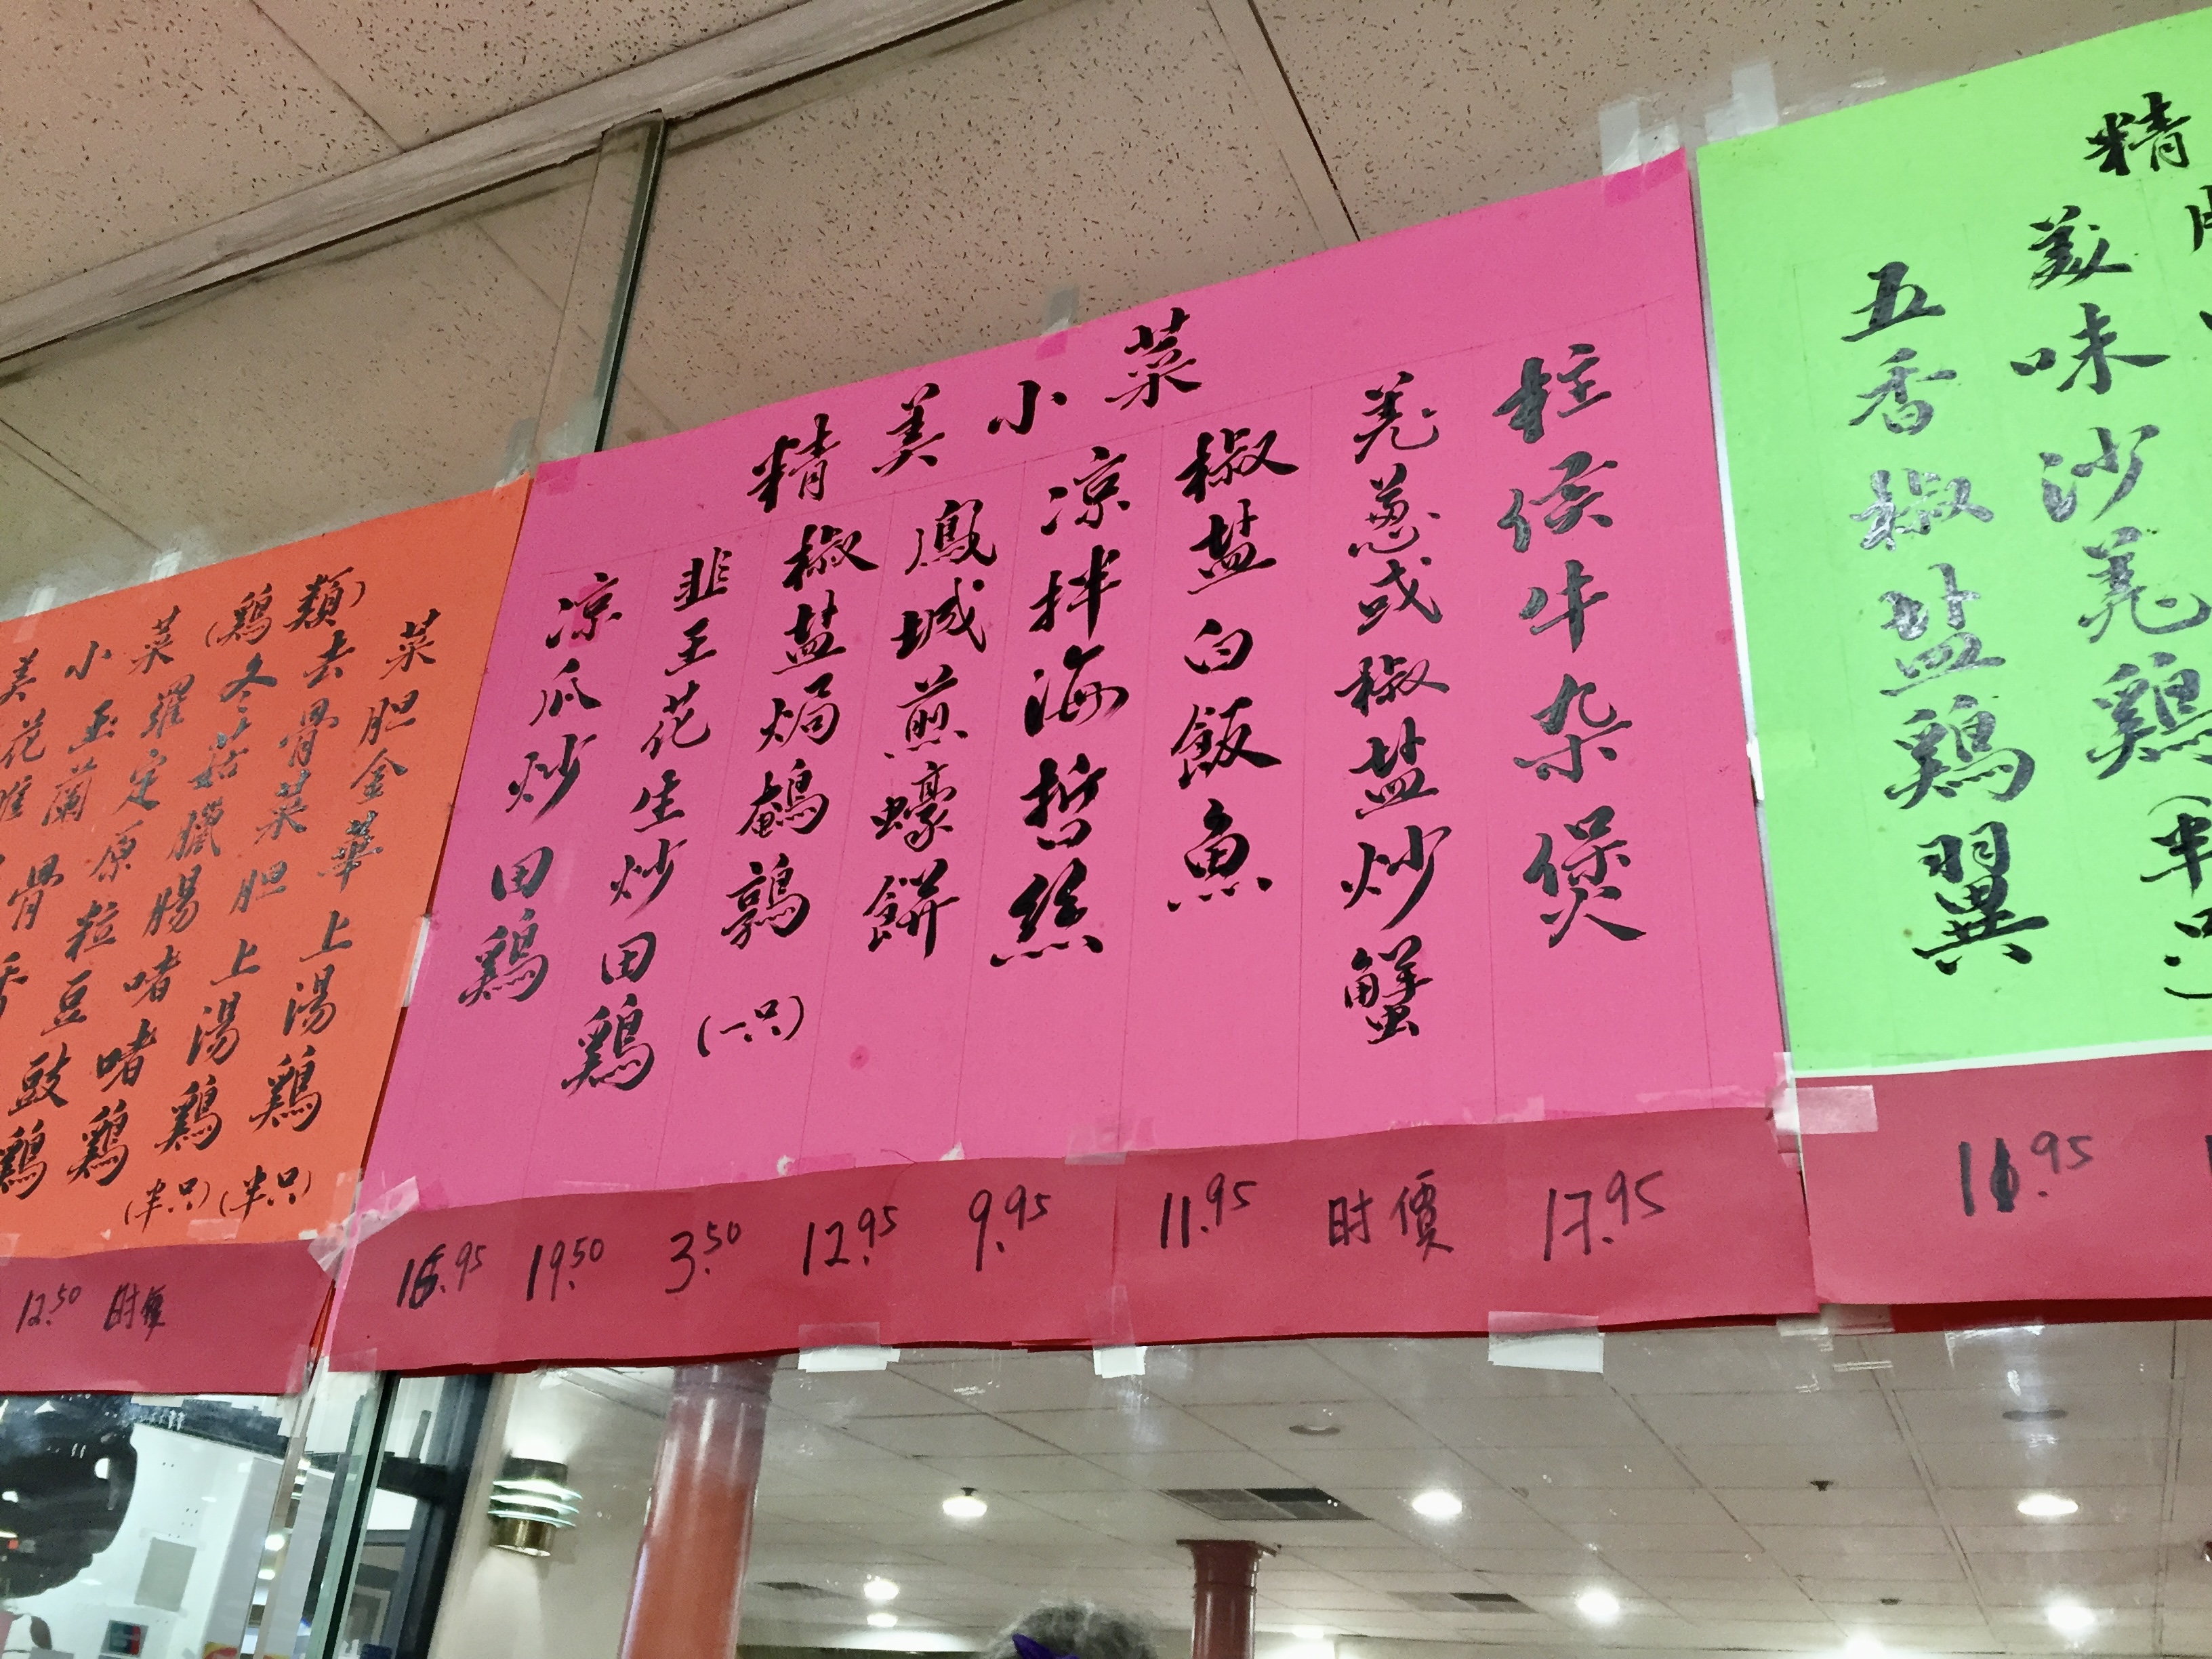 精美小菜
柱侯牛杂煲
羗葱或椒盐炒蟹
椒盐白飯魚
凉拌海哲絲
鳳城煎蠔餅
椒盐焗鵪鶉(一只)
韮王花生炒田鷄
凉瓜炒田鷄
16.95
19.50
3.50
12.95
9.95
11.95
时價
17.95
精
美味沙羗鷄(半只)
五香椒盐鷄翼
美小菜(鷄類)
菜胆金華上湯鷄(半只)
去骨菜胆上湯鷄(半只)
冬菇臘腸啫啫鷄
羅定原粒豆豉鷄
玉蘭
骨
花
12.50
时價